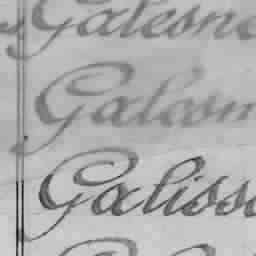 Galesne
Galesm
Galisso